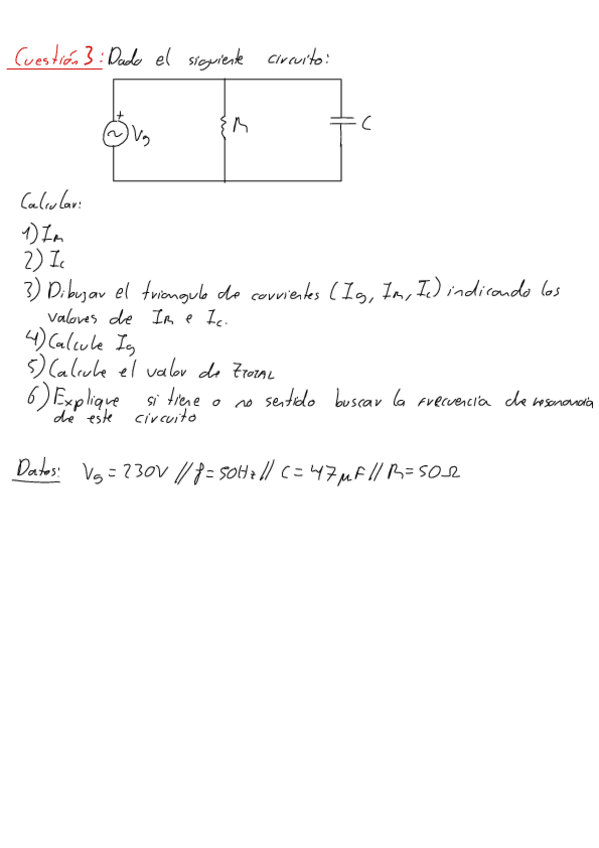 Cuestión 3: Dado el siguiente circuito:
+
Vg
R
C
Calcular:
1) IR
2) Ic
3) Dibujar el triangulo de corrientes (Ig, IR, Ic) indicando los
valores de IR e Ic.
4) Calcule Ig
5) Calcule el valor de ZTOTAL
6) Explique si tiene o no sentido buscar la frecuencia de resonancia
de este circuito
Datos: Vg = 230V // f = 50Hz // C = 47μF // R = 50Ω